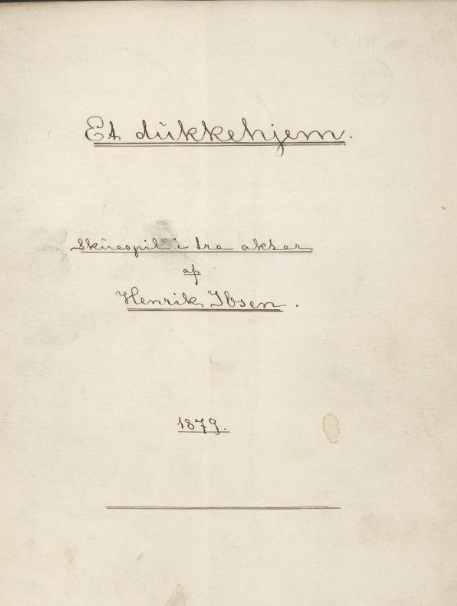 Et dükkehjem.
Sküespil i tre akter
af
Henrik Ibsen.
1879.